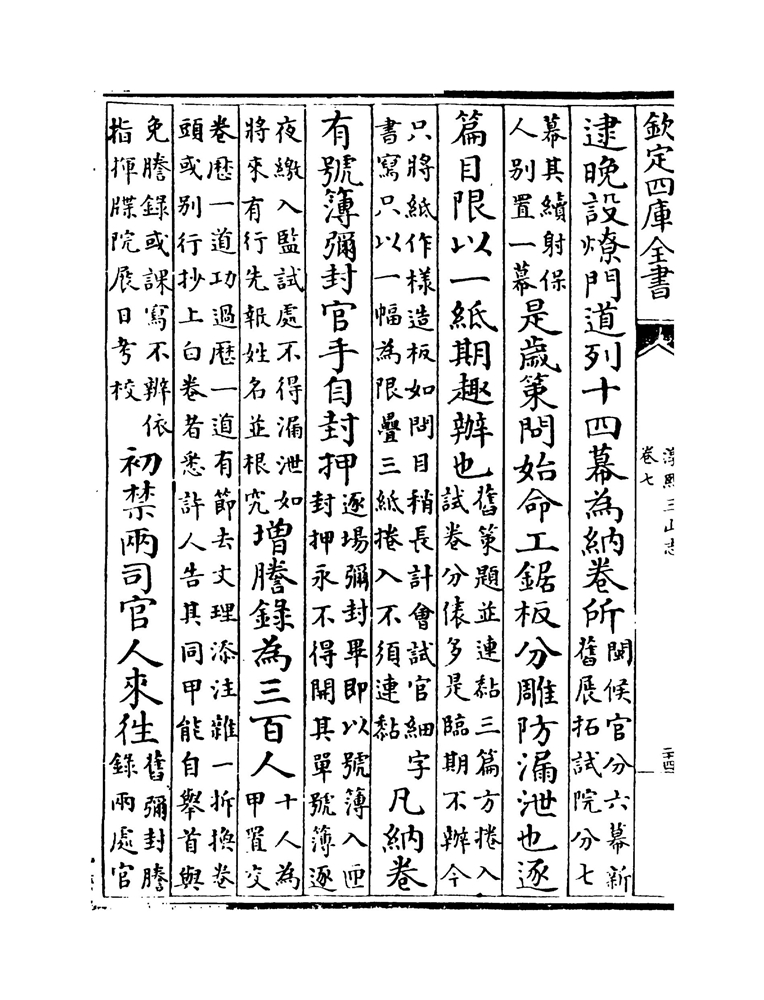 欽定四庫全書
淳熙三山志
卷七
二十四
逮晚設燎門道列十四幕為納卷所閩候官分六幕新
舊展拓試院分七
幕其續射保
人别置一幕是歳策問始命工鋸板分雕防漏泄也逐
篇目限以一紙期趣辦也舊策題並連黏三篇方捲入
試卷分俵多是臨期不辦今
只將紙作樣造板如問目稍長計會試官細字
書寫只以一幅為限疊三紙捲入不須連黏凡納卷
有號簿彌封官手自封押逐場彌封畢即以號簿入匣
封押永不得開其單號簿逐
夜繳入監試處不得漏泄如
將來有行先報姓名並根究增謄錄為三百人十人為
甲置交
卷歴一道功過歴一道有節去文理添注雜一拆換卷
頭或别行抄上白卷者悉許人告其同甲能自舉首與
免謄錄或課寫不辦依
指揮牒院展日考校初禁兩司官人來往舊彌封謄
錄兩處官